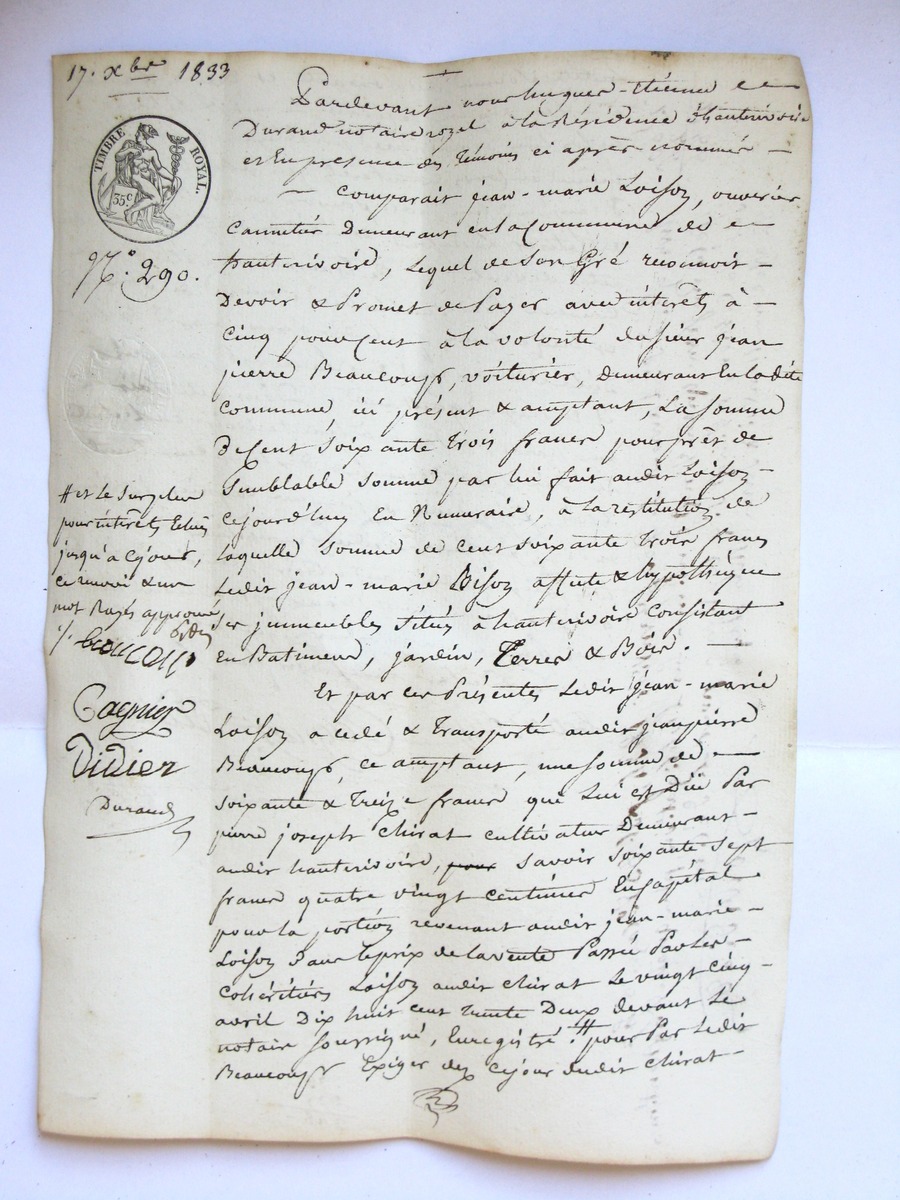 17. Xbre 1833
TIMBRE ROYAL.
35c.
No. 290.
Pardevant nous hugues-étienne
Durand notaire royal à la Résidence d'hauterivoire
et En présence des témoins ci après nommés —
— Comparait jean-marie Loison, ouvrier
Demeurant en la Commune de
hauterivoire, Lequel de Son Gré reconnoit —
Devoir & Promet de Payer avec intérêts à —
Cinq pour Cent à la volonté du sieur jean
pierre Beaucoup, voiturier, Demeurant En la dite
Commune, ici présent & acceptant, La somme
De Cent soixante trois francs pour prêt de
Semblable somme par lui fait audit Loison —
Cejourd'huy En Numéraire, à la restitution de
laquelle somme de cent soixante trois francs
Ledit jean-marie Loison affecte & hypothèque
Ses immeubles situés à hauterivoire Consistant
En Batiment, jardin, Terres & Bois. —
Et par ces Présentes Ledit jean-marie
Loison a cédé & transporté audit jean pierre
Beaucoup, ce acceptant, une somme de —
soixante & treize francs que Lui est Düe Par
pierre joseph Chirat cultivateur Demeurant —
audit hauterivoire, pour savoir soixante sept
francs quatre vingt centimes En capital
pour la portion revenant audit jean-marie —
Loison Dans le prix de la vente Passé Par les —
Cohéritiers Loison audit Chirat Le vingt cinq —
avril Dix huit cent trente Deux devant Le
notaire soussigné, Enregistré. # pour Par Ledit
Beaucoup Exiger dez cejour dudit Chirat —
# et Le surplus
pour intérêts Echus
jusqu'a cejour,
ce renvoi & un
mot Rayés approuvés
beaucoup
Gagnier
Didier
Durand